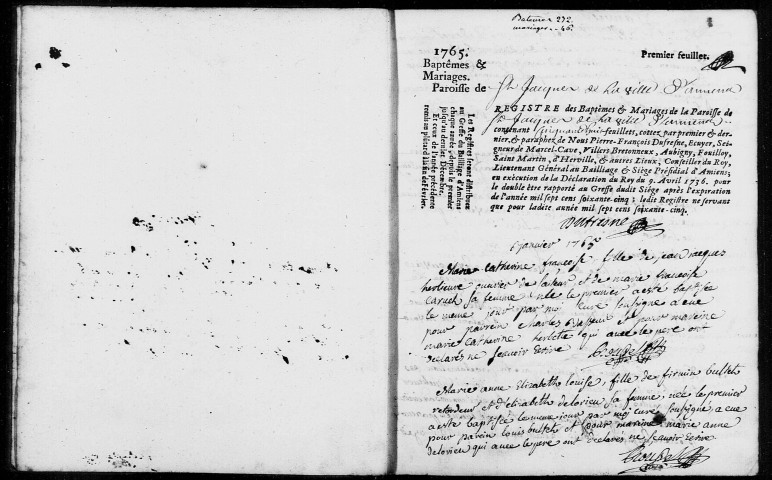 Batêmes 272
mariages .. 46.
1765.
Baptêmes &
Mariages.
Paroisse de
Premier feuillet.
St Jacques de la ville d'amiens
Les Registres seront distribués
au Greffe du Bailliage d'Amiens
chaque année, depuis le premier
jusqu'au dernier Décembre.
Et ceux de l'année précédente
remis au plûtard à la fin de Février.
REGISTRE des Baptêmes & Mariages de la Paroisse de
St Jacques de la ville d'amiens
contenant feuillets, cottez par premier & der-
nier, & paraphez de Nous Pierre-François Dufresne, Ecuyer, Sei-
gneur de Marcel-Cave, Villers Bretonneux, Aubigny, Fouilloy,
Saint Martin, d'Herville, & autres Lieux, Conseiller du Roy,
Lieutenant Général au Bailliage & Siége Présidial d'Amiens;
en exécution de la Déclaration du Roy du 9. Avril 1736. pour
le double être rapporté au Greffe dudit Siége après l'expiration
de l'année mil sept cens soixante-cinq; ledit Registre ne servant
que pour ladite année mil sept cens soixante-cinq.
Dufresne
janvier 1765
Marie Catherine françoise fille de jean jacques
ouvrier de et de marie françoise
sa femme née le premier a esté batisée
le meme jour par moi curé soussigné a eue
pour parrein charles et pour mareine
marie Catherine qui avec le pere ont
declarés ne sçavoir ecrire
Marie anne Elizabeth louise, fille de firmin
retondeur et d'elizabeth delorieu sa femme, née le premier
a esté baptisée le meme jour par moy curé soussigné a eue
pour parein louis et pour maraine marie anne
delorieu qui avec le pere ont declarés ne sçavoir ecrire